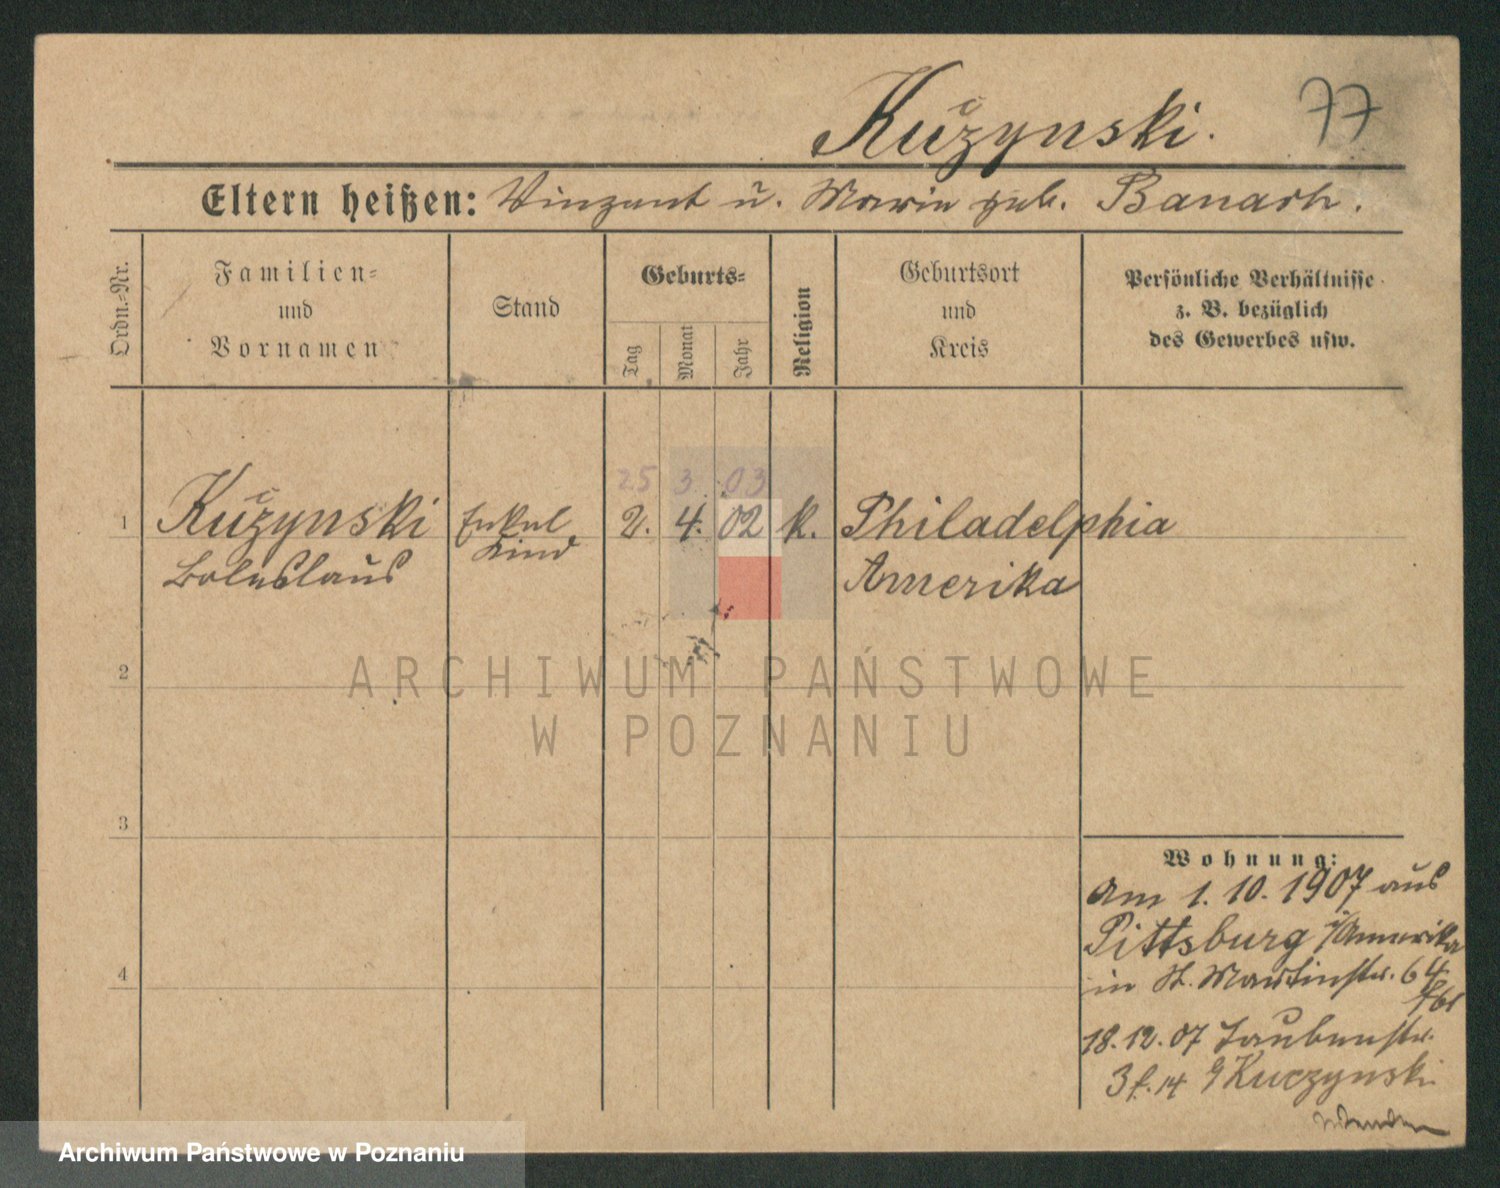 Kučzynski.
77
Eltern heißen: Vinzent u. Marie geb. Banach.
Ordn.-Nr.
Familien=
und
Vornamen
Stand
Geburts=
Tag
Monat
Jahr
Religion
Geburtsort
und
Kreis
Persönliche Verhältnisse
z. B. bezüglich
des Gewerbes usw.
25 3. 03
1 Kučzynski Enkel 2. 4. 02 k. Philadelphia
Kind
Boleslaus Amerika
2
3
4
Wohnung:
Am 1. 10. 1907 aus
Pittsburg i/Amerika
in St. Martinstr. 64
18.12.07 Taubenstr.
3 f. 14 Kuczynski
wenden
ARCHIWUM PAŃSTWOWE
W POZNANIU
Archiwum Państwowe w Poznaniu